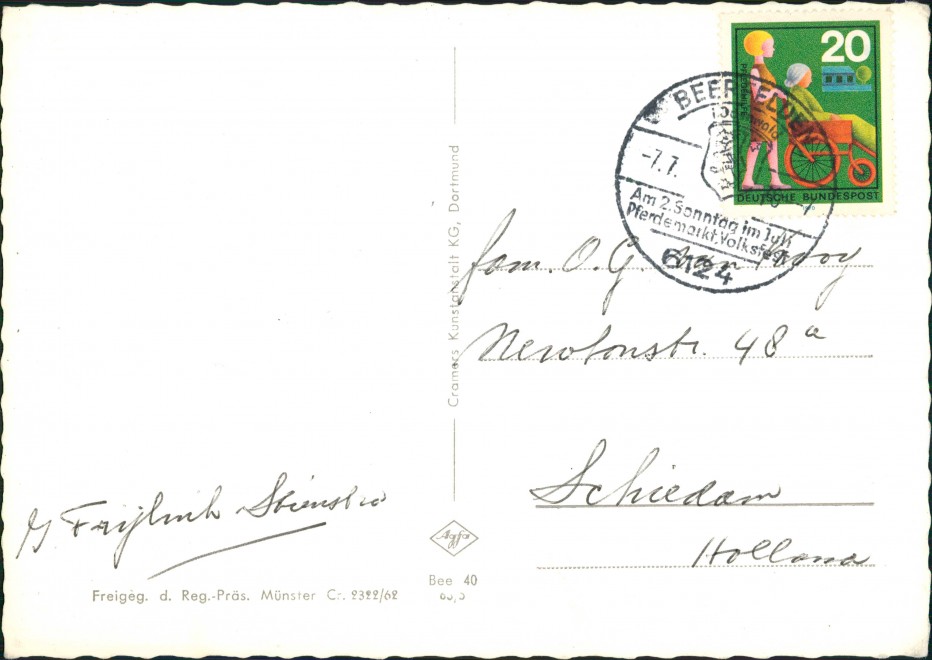 20
DEUTSCHE BUNDESPOST
BEERFELDEN
-7.7.
Am 2. Sonntag im Juli
Pferdemarkt, Volksfest
6124
fam. O.G. van
Newtonstr. 48 a
Schiedam
Holland
Cramers Kunstanstalt KG, Dortmund
Agfa
Bee 40
Freigeg. d. Reg.-Präs. Münster Cr. 2322/62